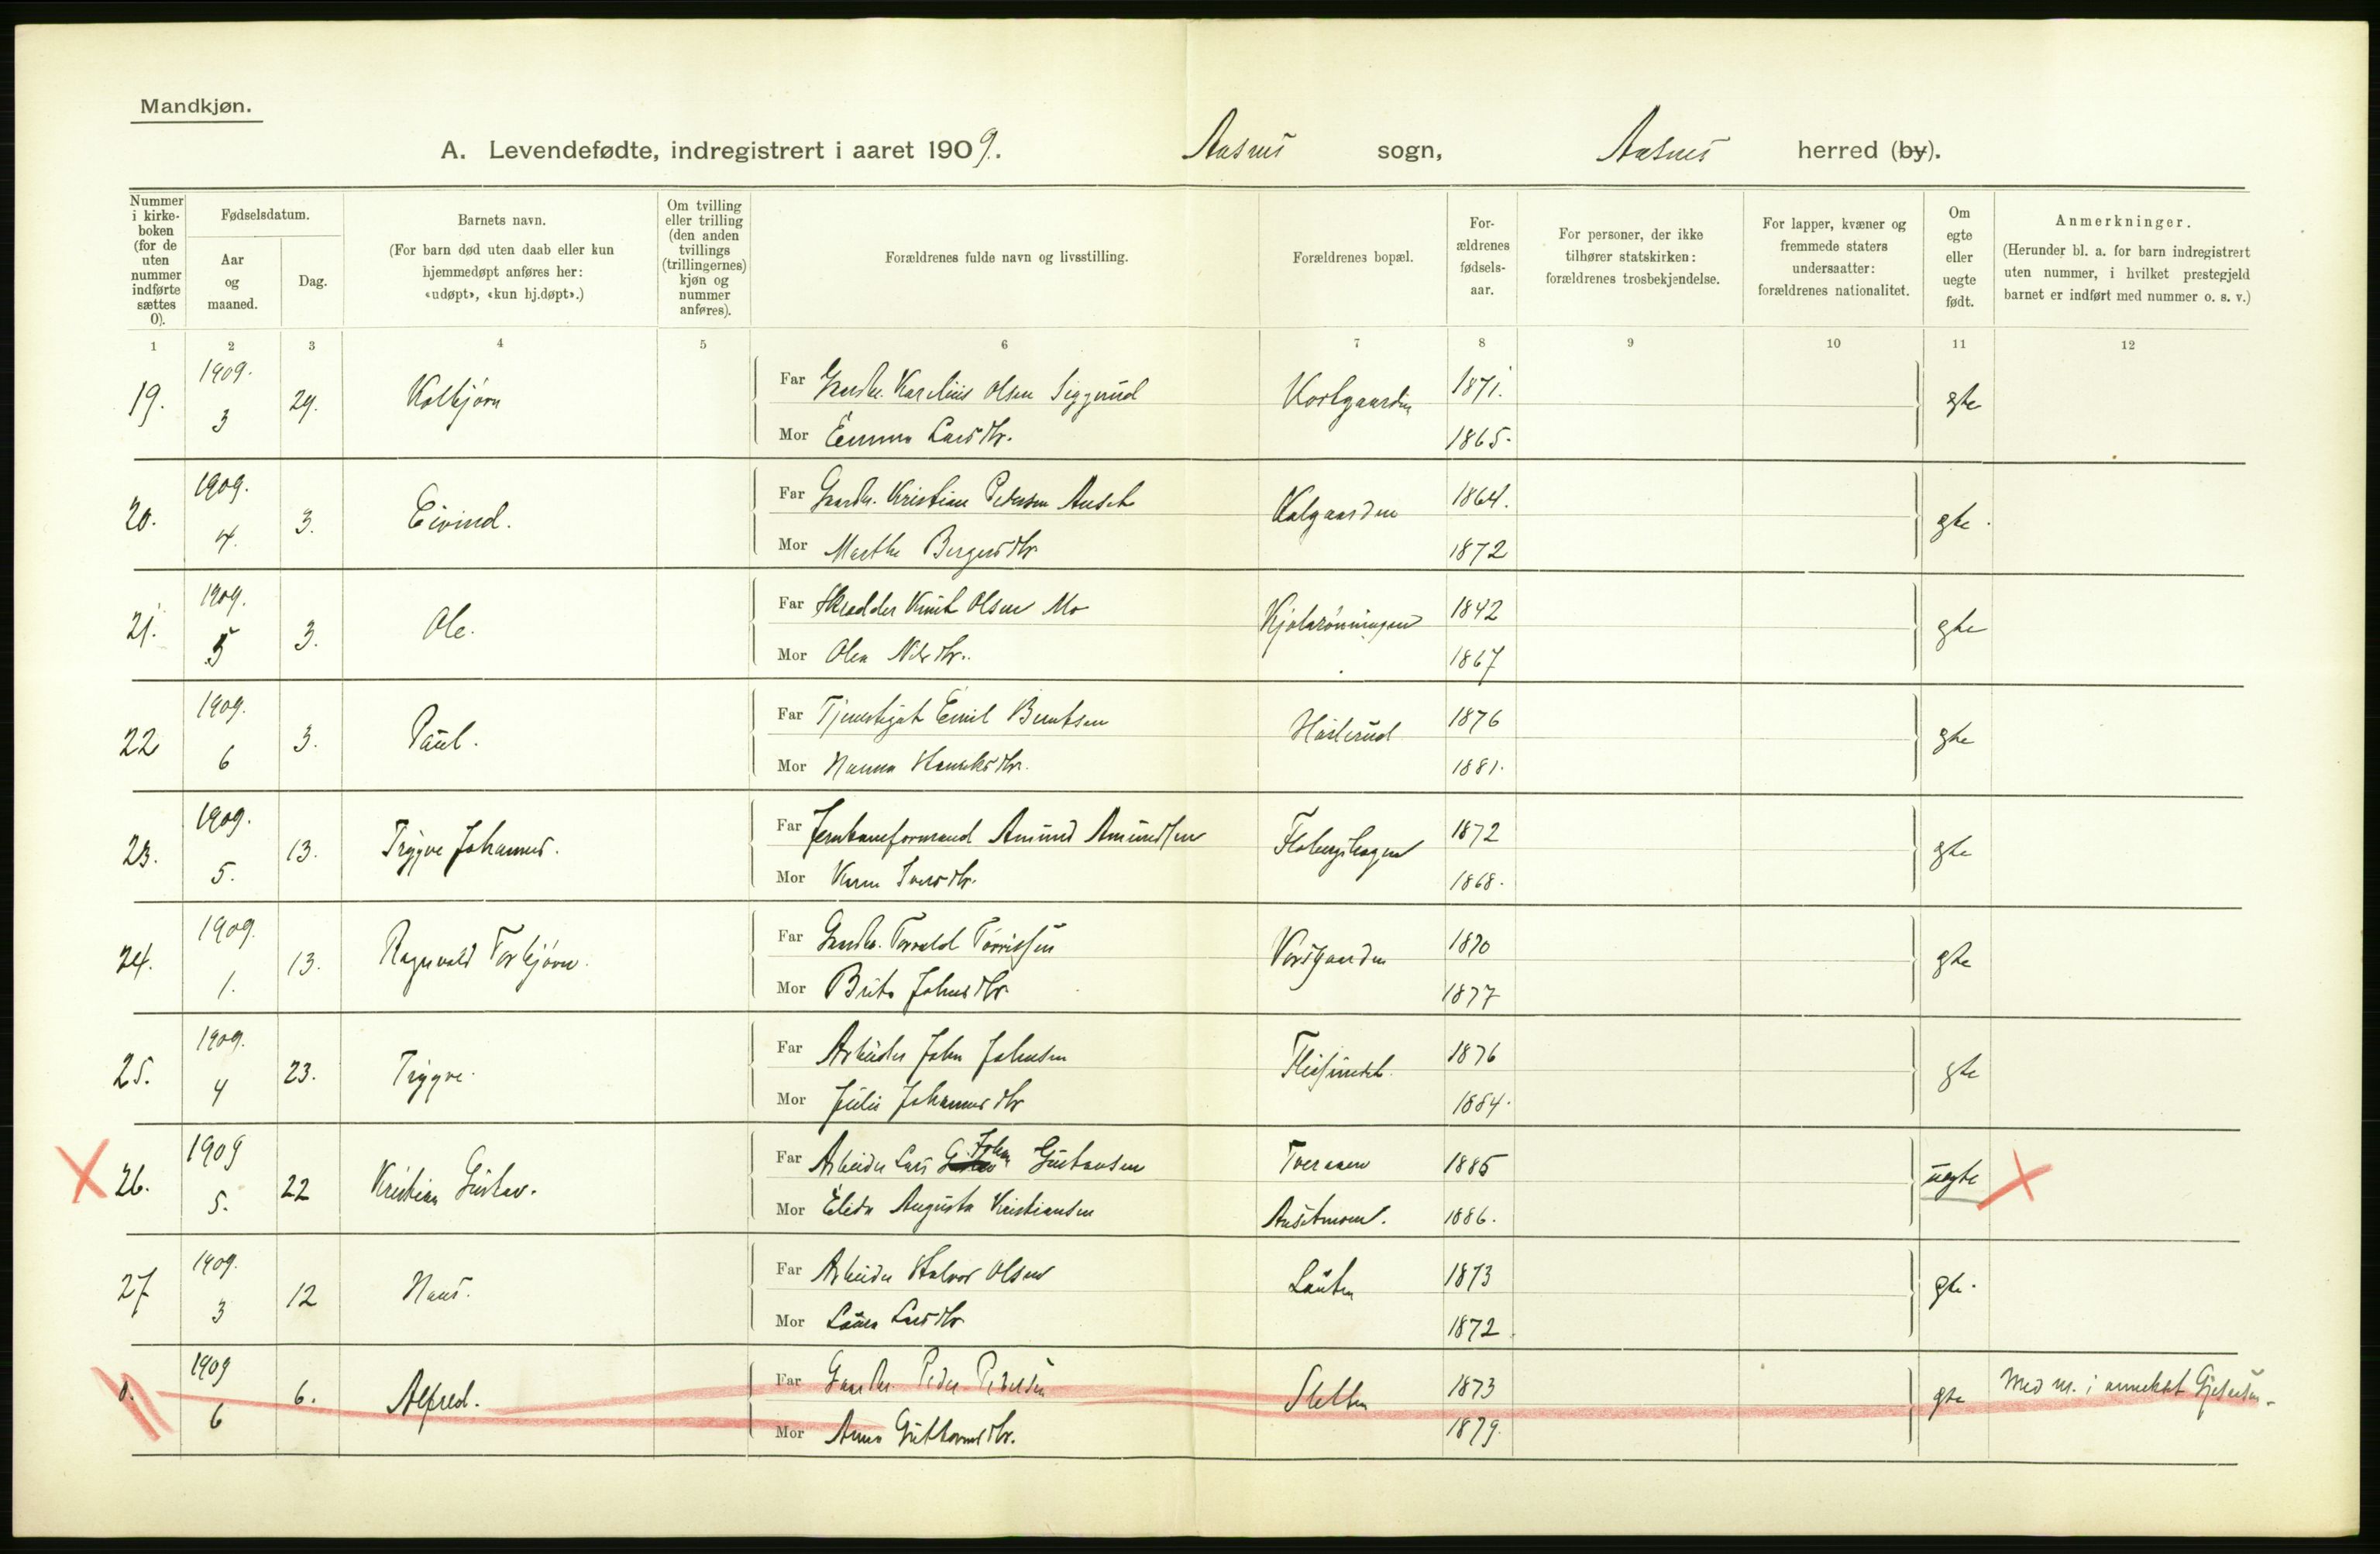 Mandkjøn.
A. Levendefødte, indregistrert i aaret 1909. Aasnes sogn, Aasnes herred (by).
Nummer i kirke-boken (for de uten nummer indførte sættes 0).
Fødselsdatum.
Aar og maaned.
Dag.
Barnets navn.
(For barn død uten daab eller kun hjemmedøpt anføres her: «udøpt», «kun hj.døpt».)
Om tvilling eller trilling (den anden tvillings (trillingernes) kjøn og nummer anføres).
Forældrenes fulde navn og livsstilling.
Forældrenes bopæl.
For-ældrenes fødsels-aar.
For personer, der ikke tilhører statskirken: forældrenes trosbekjendelse.
For lapper, kvæner og fremmede staters undersaatter: forældrenes nationalitet.
Om egte eller uegte født.
Anmerkninger.
(Herunder bl. a. for barn indregistrert uten nummer, i hvilket prestegjeld barnet er indført med nummer o. s. v.)
1 2 3 4 5 6 7 8 9 10 11 12
19. 1909. 3 29. Kolbjørn Far Gaardbr. Karelius Olsen Siggerud 1871. egte
Mor Emma Larsdtr. 1865.
20. 1909. 4. 3. Eivind. Far Gaardbr. Kristian Pedersen Kalgaarden 1864. egte.
Mor Marthe Bergersdtr 1872
21. 1909. 5 3. Ole. Far Skrædder Knut Olsen Mo Kjølarønningen 1842 egte
Mor Olea Nilsdtr.. 1867
22 1909. 6 3. Paul. Far Emil Berntsen 1876 egte
Mor Hanna 1881.
23. 1909. 5. 13. Trygve Johannes. Far Jernbaneformand Amund Amundsen Flobergshagen 1872 egte
Mor Karen Iversdtr. 1868.
24. 1909. 1. 13. Ragnvald Torbjørn. Far Gaardbr. Torvald Torrissen 1870 egte
Mor Brita Johnsdtr 1877
25. 1909. 4 23. Trygve. Far Arbeider John Johnsen 1876 egte
Mor Julie Johannesdtr 1884.
26. 1909 5. 22 Kristian Gustav. Far Arbeider Lars Johan Gustavsen Tveraaen 1885 uegte
Mor Elida Augusta Kristiansen 1886.
27 1909. 3 12 Hans. Far Arbeider Halvor Olsen Lauta 1873 egte.
Mor Laura Larsdtr 1872.
0. 1909 6 6. Alfred. Far Gaardbr Peder Pedersen Sletten 1873 egte Med nr. i annekset Gjesaasen.
Mor Anna Guttormsdtr. 1879.